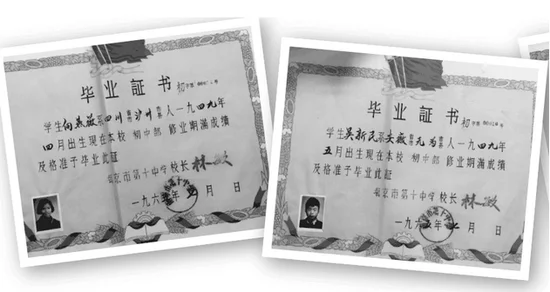 毕业証书
初
学生 系四川 泸州 人一九四九年
四月出生現在本校 初中部 修业期滿成績
及格准予毕业此証
南京市第十中学校长 林
一九六五年 月 日
毕业証书
初
学生吴新民系安徽 无为 人一九四九年
五月出生現在本校 初中部 修业期滿成績
及格准予毕业此証
南京市第十中学校长 林
一九六五年 月 日